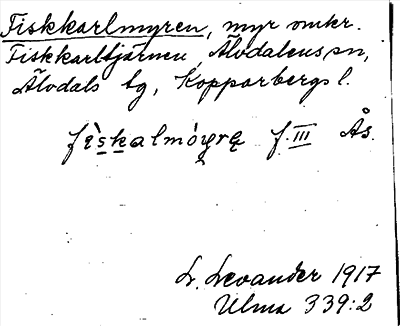 Fiskkarlmyren, myr omkr.
Fiskkarltjärnen, Älvdalens sn,
Älvdals tg, Kopparbergs l.
fìskalmóyrę f. III Ås.
L. Levander 1917
Ulma 339:2